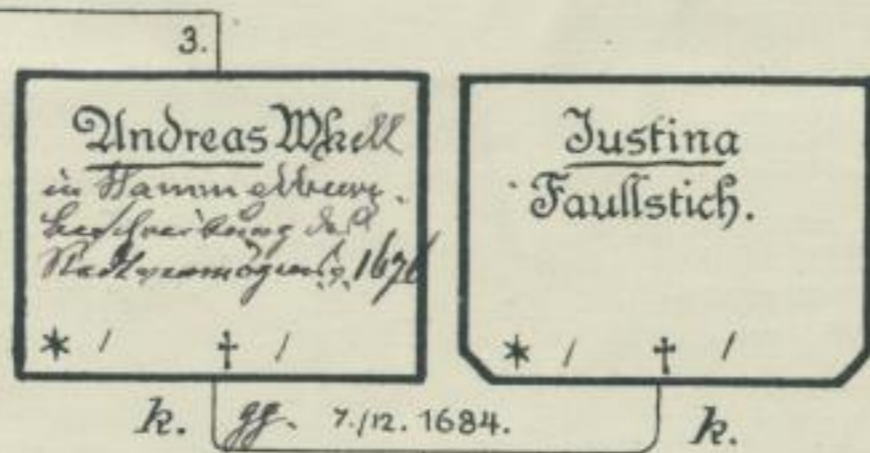 3.
Andreas Whell
in Hammelburg.
beschreibung des
Stadtvermögens v. 1676
* / † /
Justina
Faullstich.
* / † /
k. gg. 7./12. 1684. k.